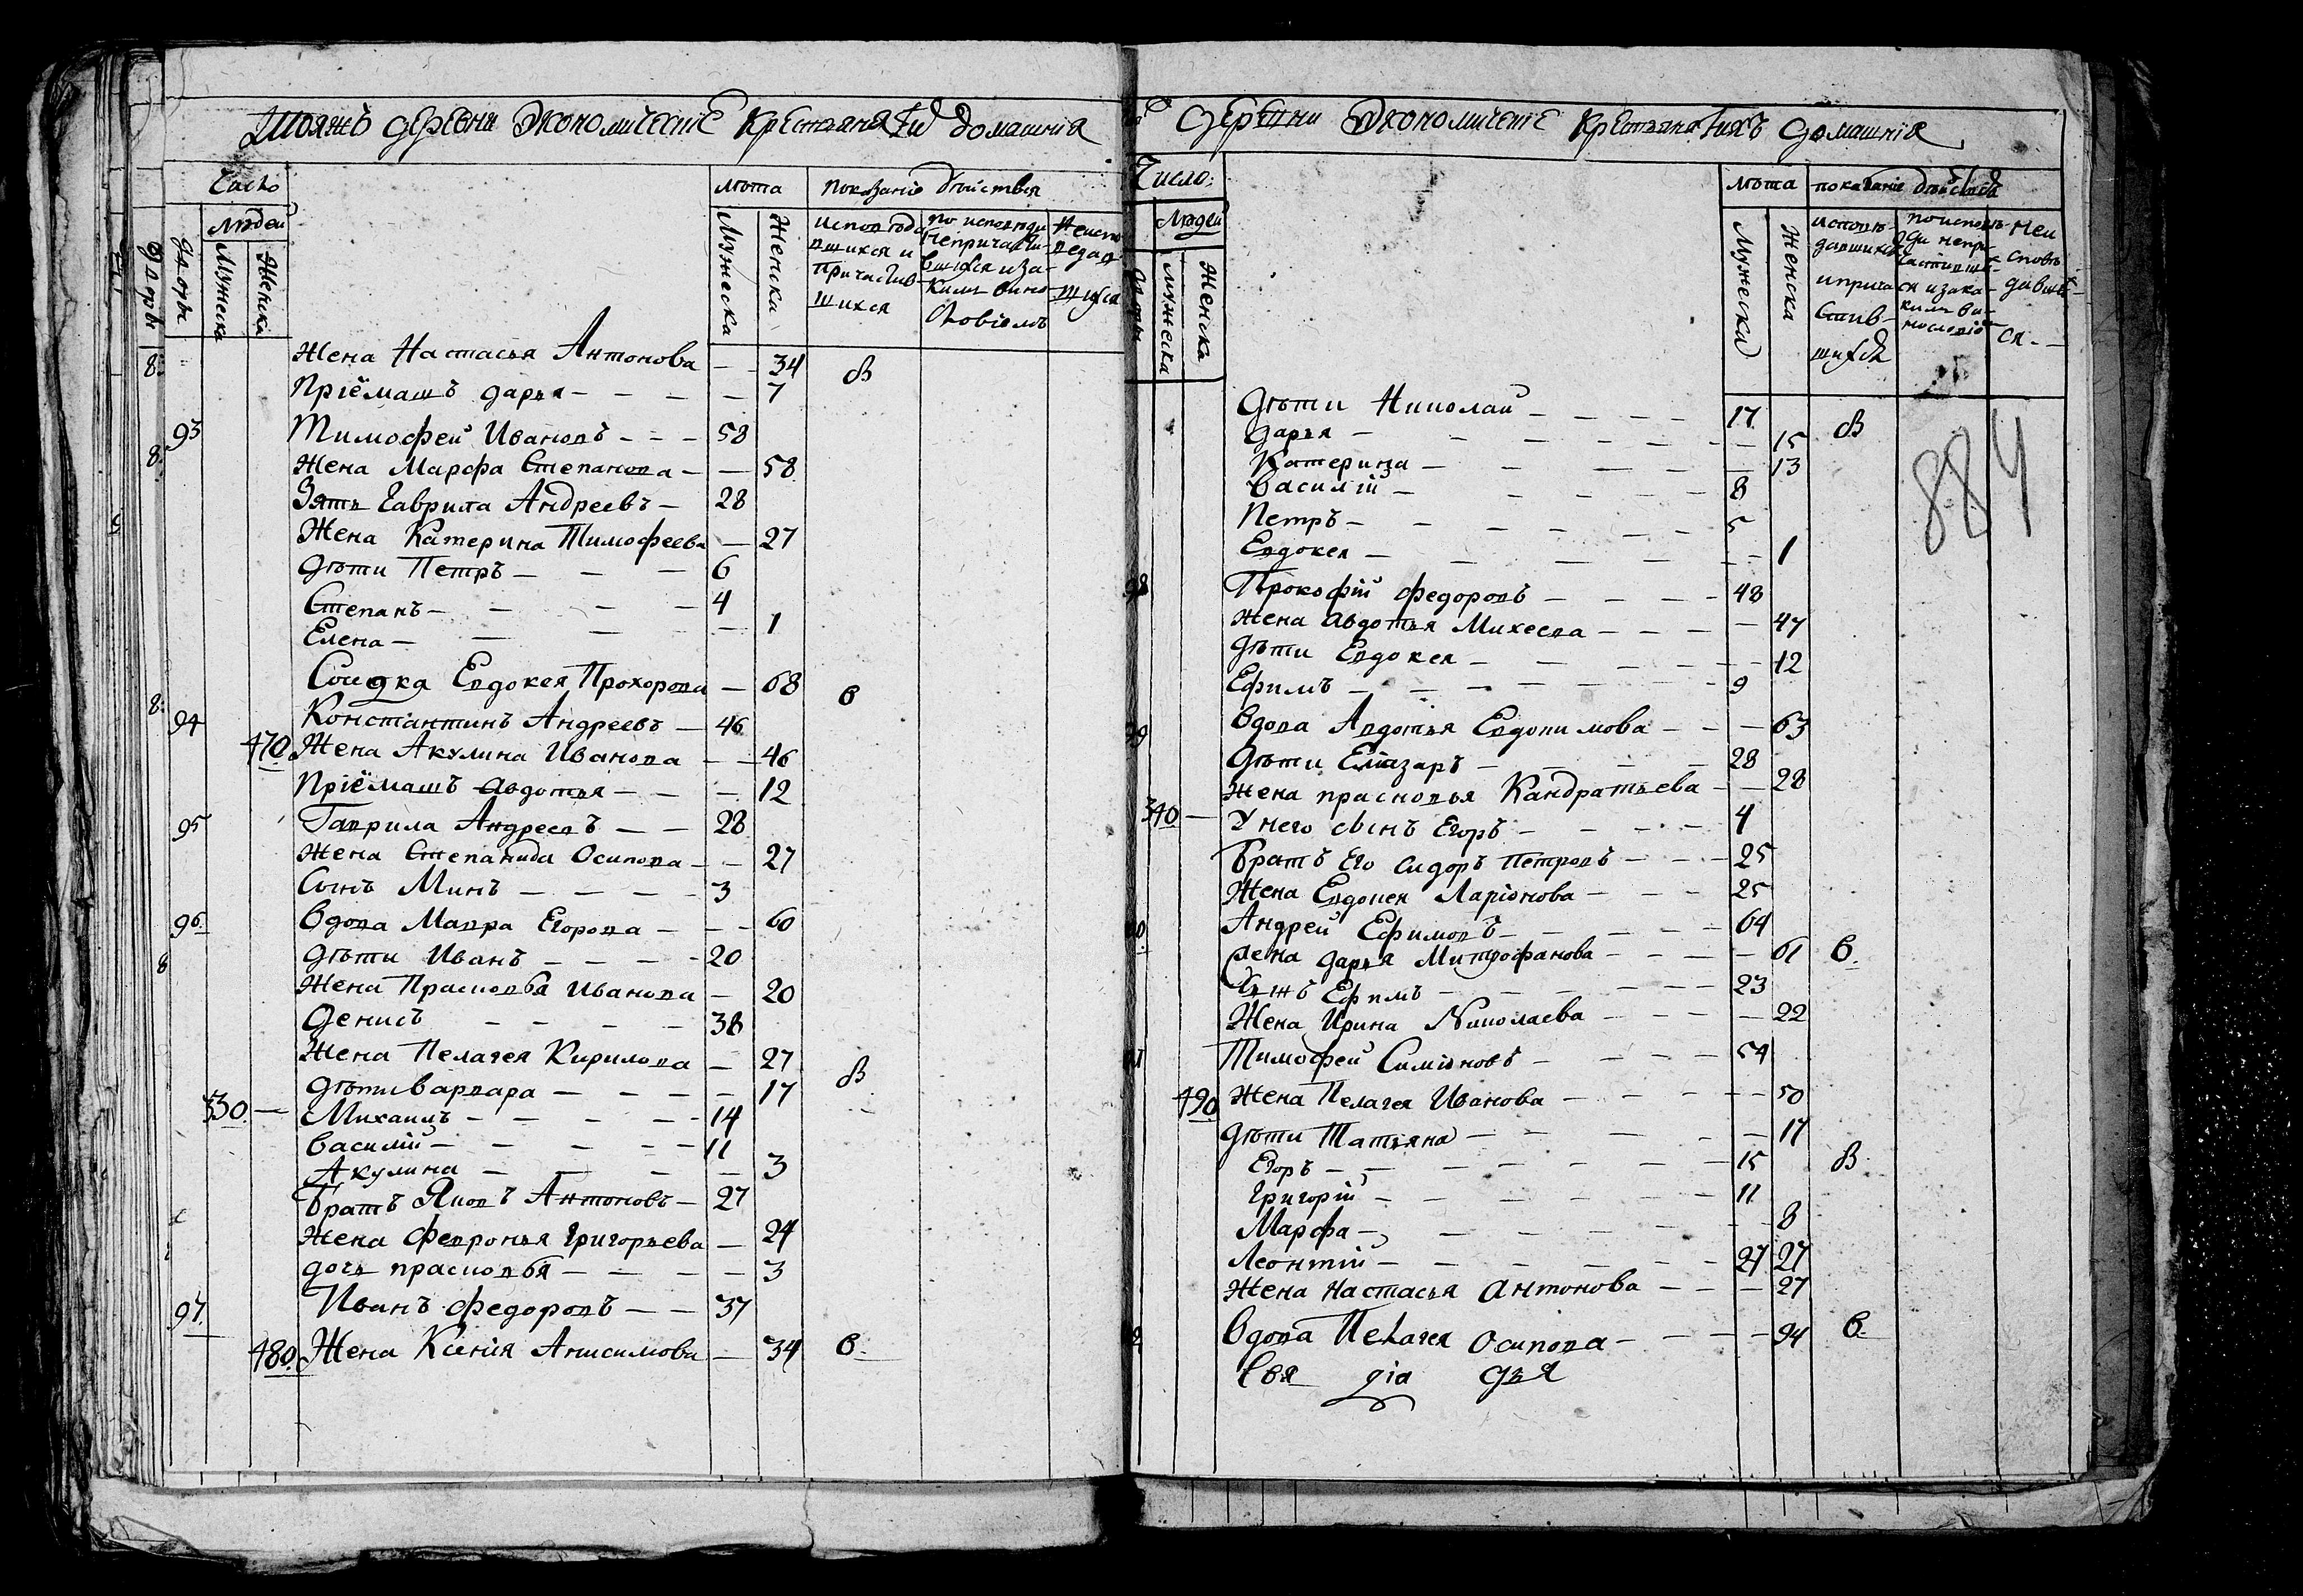 Тояжъ деревни Экономическiе крестьяня Ихъ домашнiя
Число
лѣта
показанiе дѣйствiя
Людей
дворы
Мужеска
Женска
Мужеска
Женска
исповѣда
вшихся и
причастив
шихся
по исповѣди
непричасти-
вшiхся и за
какимъ вино
словiемъ
Неиспо
ведав
шихся
Жена Настасья Антонова — 34 В
Прiёмашъ дарья — 7
93 Тимофей Ивановъ — 58
Жена Марфа Степанова — 58
Зять Гаврила Андреевъ — 28
Жена Катерина Тимофеева — 27
дѣти Петръ — 6
Степанъ — 4
Елена — 1
Солдка Евдокея Прохорова — 68 в
94 Константинъ Андреевъ — 46
470 Жена Акулина Иванова — 46
Прiёмашъ авдотья — 12
95 Гаврила Андреевъ — 28
Жена Степанида Осипова — 27
Сынъ Минъ — 3
96 Вдова Мавра Егорова — 60
дѣти Иванъ — 20
Жена Прасковья Иванова — 20
Денисъ — 38
Жена Пелагея Кирилова — 27
дѣти Варвара — 17 В
330 — Михаилъ — 14
Василiй — 11
Акулина — 3
Братъ Яковъ Антоновъ — 27
Жена Февронья Григорьева — 24
дочь прасковья — 3
97 Иванъ Федоровъ — 37
480 Жена Ксенiя Анисимова — 34 в
деревни Экономическiе крестьяня Ихъ домашнiя
Число:
лѣта
показанiе дѣйствiя
Людей
Мужеска
Женска
Мужеска
Женска
исповѣ-
давшихся
и прича
стив-
шихся
по исповѣ-
ди непри-
частивши-
ся и зака-
кимъ ви-
нословiе
Неи
сповѣ
давши
ся
дѣти Николай — 17 В
дарья — 15
Катерина — 13
Василiй — 8
Петръ — 5
Евдокея — 1
884
98 Прокофiй Федоровъ — 48
Жена авдотья Михеева — 47
дѣти Евдокея — 12
Ефимъ — 9
Вдова Авдотья Евдокимова — 63
дѣти Елiазаръ — 28
Жена прасковья Кандратьева — 28
340 — У него сынъ Егоръ — 4
Братъ Его сидоръ петровъ — 25
Жена Евдокея Ларiонова — 25
Андрей Ефимовъ — 64
жена дарья Митрофанова — 61 в
Ефимъ — 23
Жена Ирина Николаева — 22
Тимофей Симiоновъ — 54
490 Жена Пелагея Иванова — 50
дѣти Татьяна — 17
Егоръ — 15 В
Григорiй — 11
Марфа — 8
Леонтiй — 27 27
Жена настасья антонова — 27
Вдова Пелагея осипова — 94 в